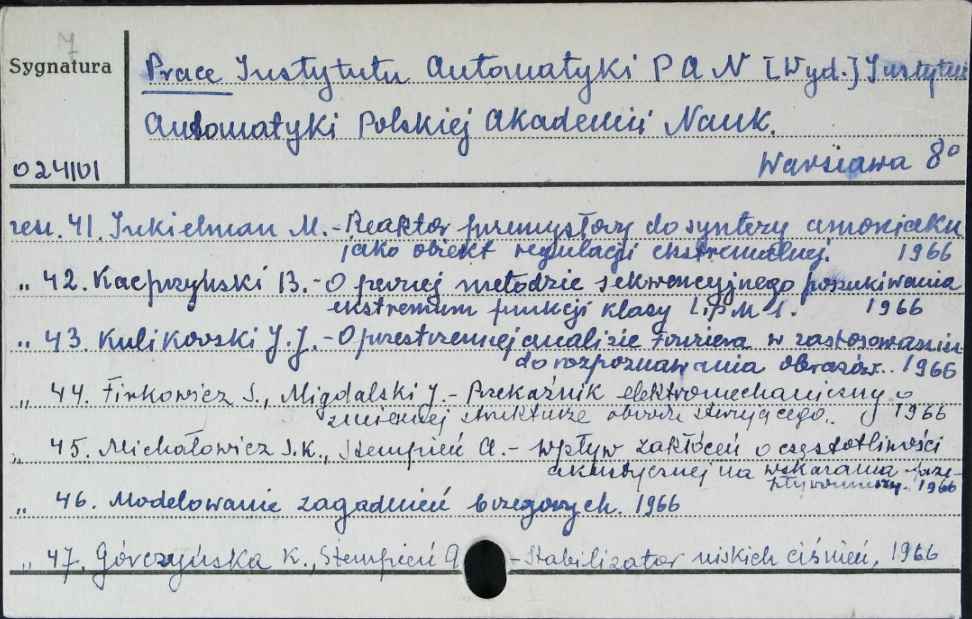 7
Sygnatura
Prace Instytutu Automatyki P A N [Wyd.] Instytut
Automatyki Polskiej Akademii Nauk.
Warszawa 8°
024101
zesz. 41. Inkielman M. - Reaktor przemysłowy do syntezy amoniaku
jako obiekt regulacji ekstremalnej. 1966
„ 42. Kacprzyński B. - O pewnej metodzie sekwencyjnego poszukiwania
ekstremum funkcji klasy LipM 1. 1966
„ 43. Kulikowski J.J. - O przestrzennej analizie Fouriera w zastosowaniu
do rozpoznawania obrazów. 1966
„ 44. Firkowicz S., Migdalski J. - Przekaźnik elektromechaniczny o
zmiennej strukturze obwodu sterującego. 1966
„ 45. Michałowicz J.K., Stempień A. - Wpływ zakłóceń o częstotliwości
akustycznej na wskazania prze-
pływomierzy. 1966
„ 46. Modelowanie zagadnień brzegowych. 1966
„ 47. Górczyńska K., Stempień A. - Stabilizator niskich ciśnień, 1966